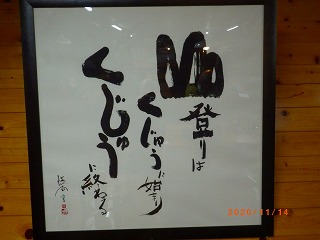 山登りは
くじゅうに始まり
くじゅう
に終わる
2020/11/14